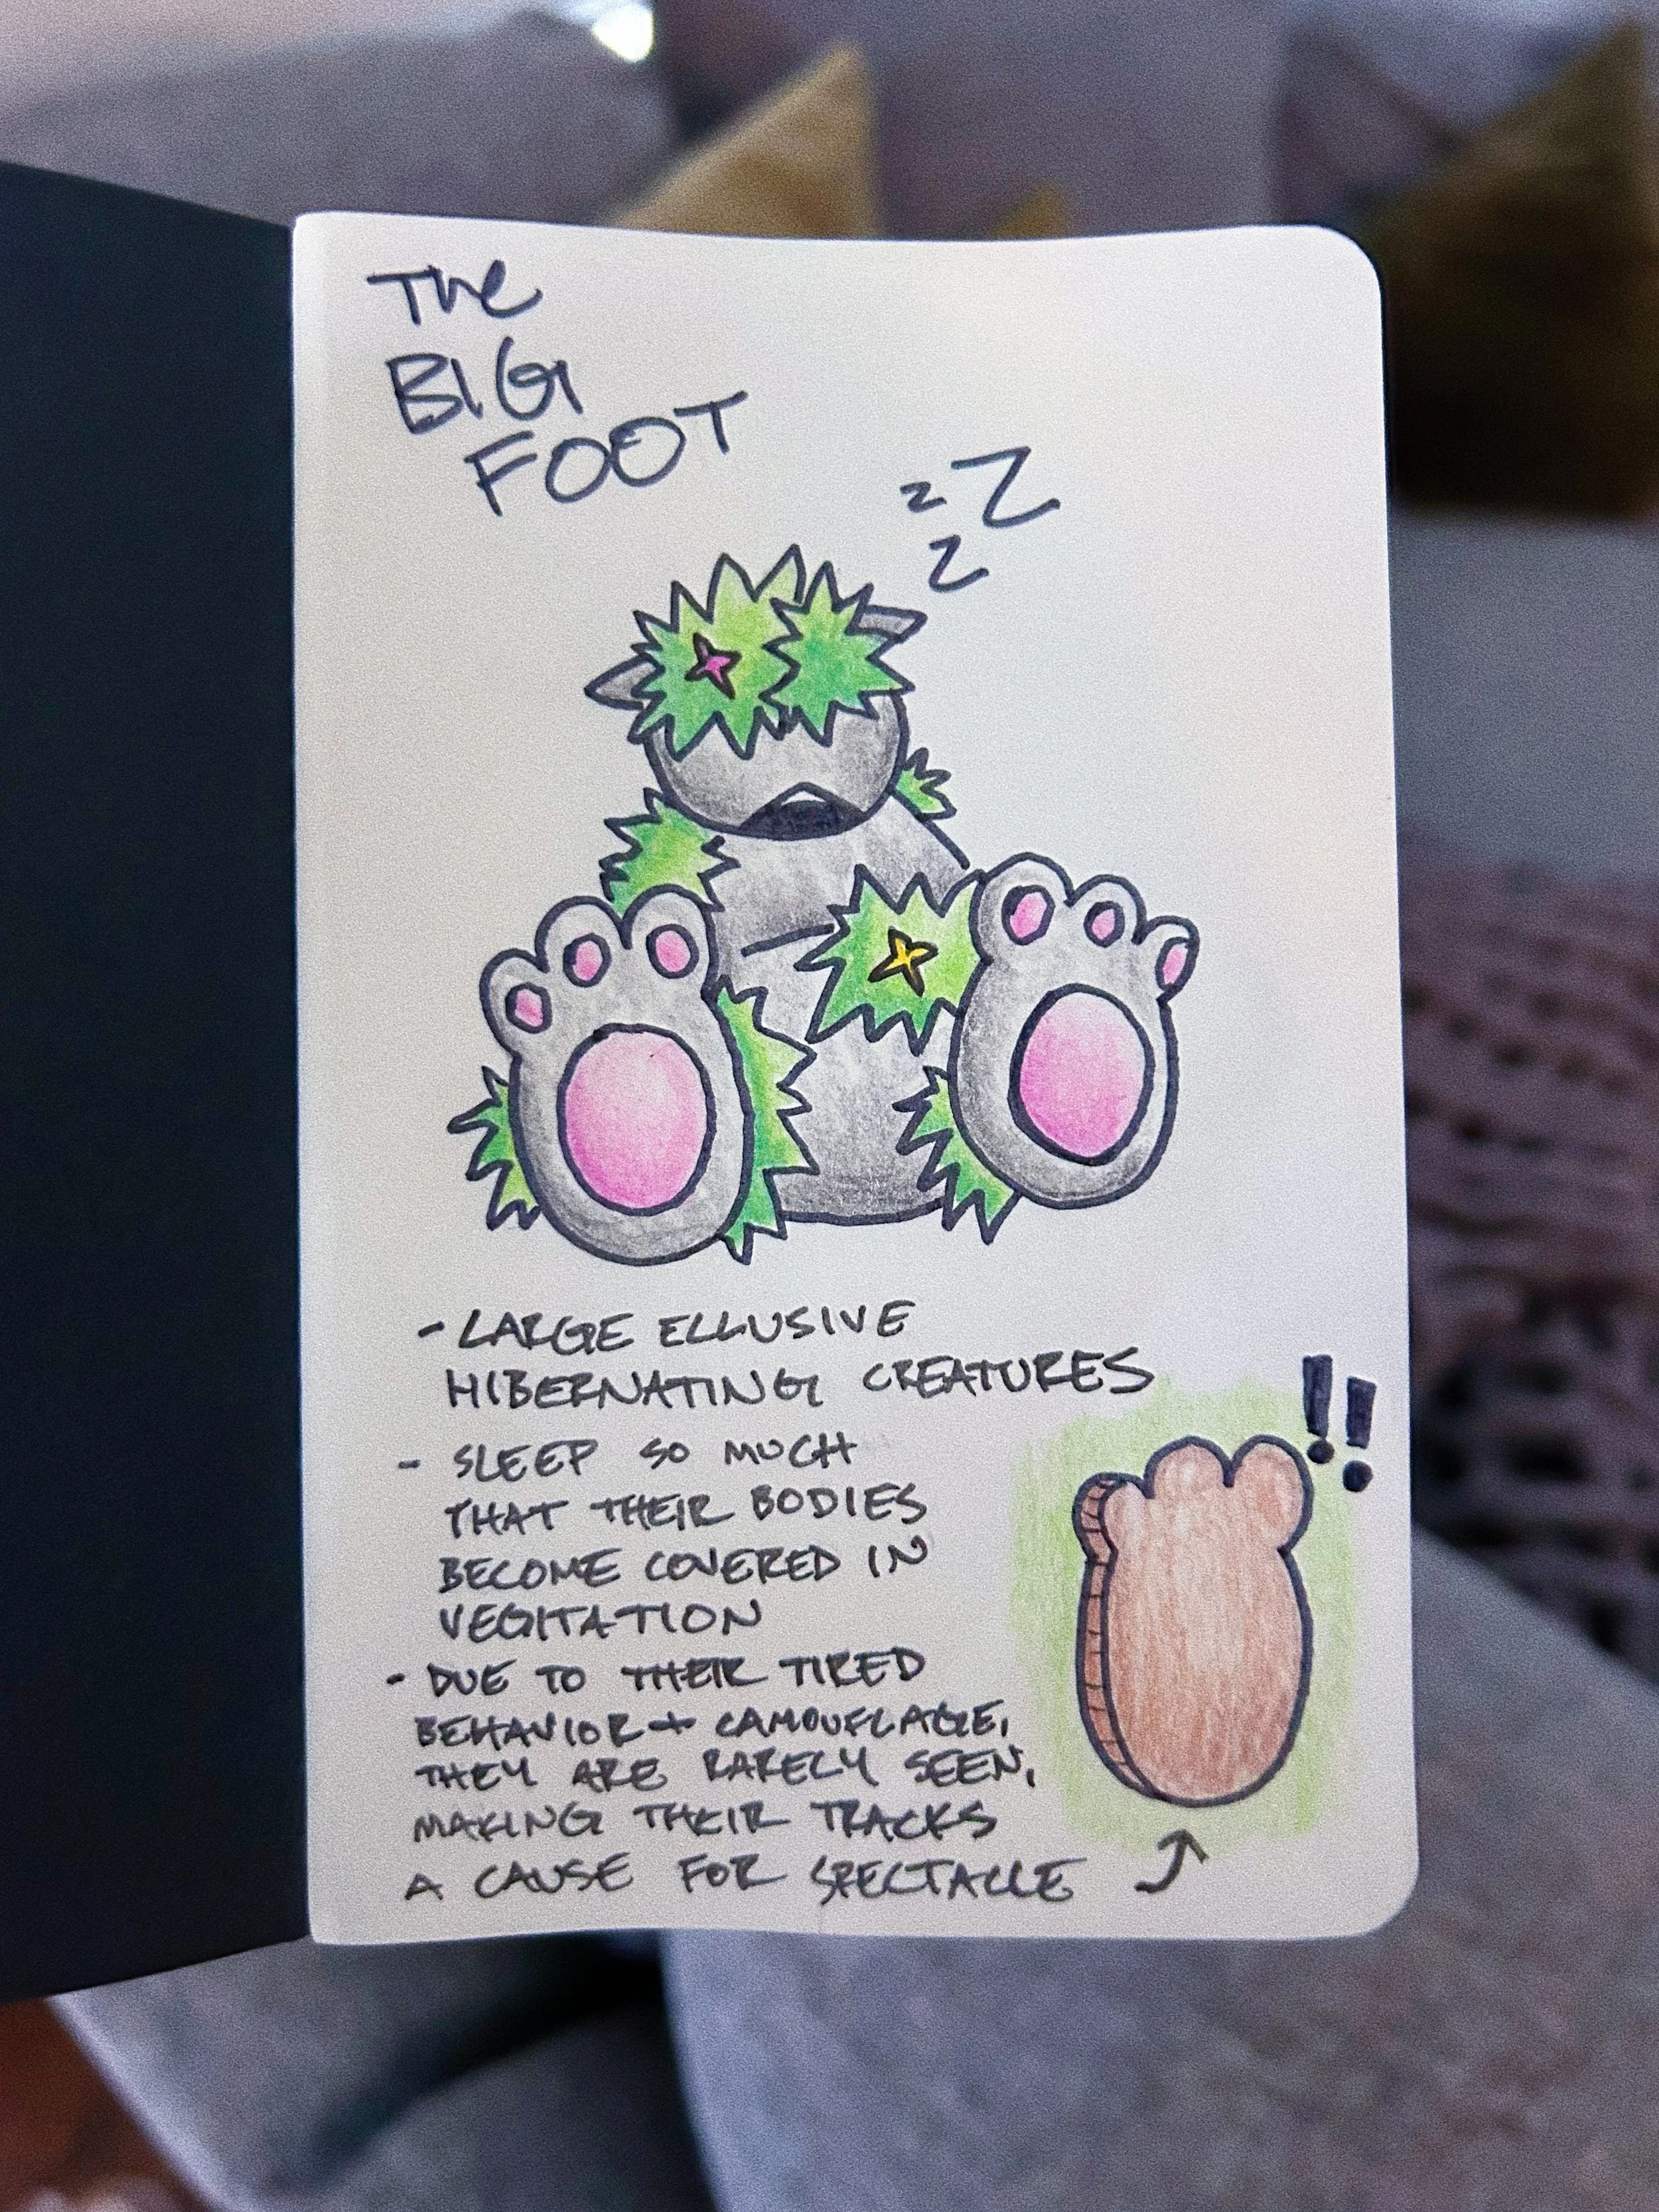 The
BIG
FOOT
z Z
Z
- LARGE ELLUSIVE
HIBERNATING CREATURES
- SLEEP SO MUCH
THAT THEIR BODIES
BECOME COVERED IN
VEGITATION
- DUE TO THEIR TIRED
BEHAVIOR + CAMOUFLAGE,
THEY ARE RARELY SEEN,
MAKING THEIR TRACKS
A CAUSE FOR SPECTACLE
!!